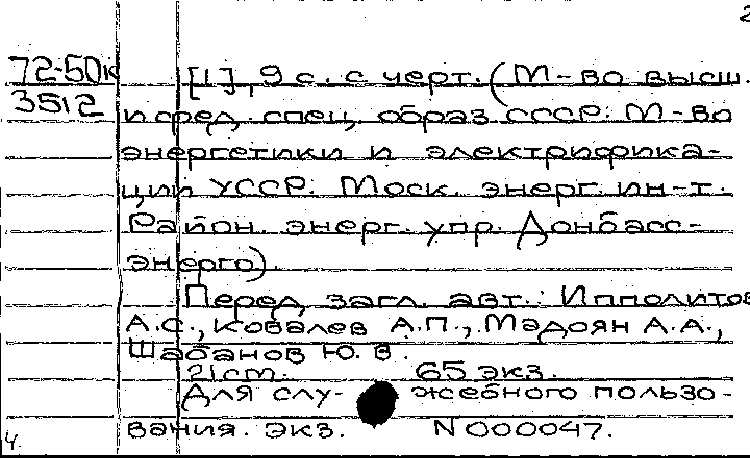 2
72-50к [1], 9 с. с черт. (М-во высш.
3512 и сред. спец. образ СССР. М-во
энергетики и электрифика-
ции УССР. Моск. энерг. ин-т.
Район. энерг. упр. Донбасс-
энерго).
Перед загл. авт.: Ипполитов
А.С., Ковалев А.П., Мадоян А.А.,
Шабанов Ю.В.
21 cm. 65 экз.
Для слу- жебного пользо-
вания. экз. N 000047.
4.